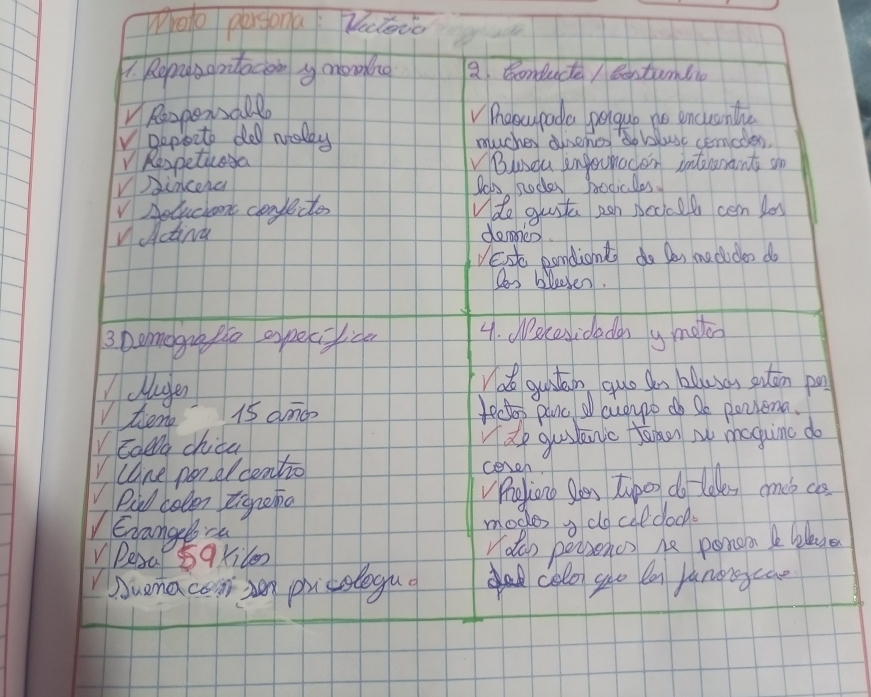 Proto persona: Victoria
1. Representacion y nombre
✓ Responsable
✓ Deporte del voley
✓ Respetuosa
✓ Sincera
✓ Soluciona conflictos
✓ Activa
2. Conducta / Costumbre
✓ Preocupada porque no encuentra
muchos diseños de blusa comodos.
✓ Busca información interesante en
las redes sociales.
✓ Le gusta ser sociable con los
demás.
✓ Está pendiente de las medidas de
las blusas.
3. Demografía especifica
✓ Mujer
✓ tiene 15 años
✓ Talla chica
✓ Vive por el centro
✓ Piel color trigeña
✓ Evangelica
✓ Pesa 59 Kilos
✓ Sueña con ser psicologa.
4. Necesidades y metas
✓ Le gustan que las blusas esten per
fectas para el cuerpo de la persona.
✓ Le gustaria tener su maquina de
coser.
✓ Prefiere los tipos de telas más co
modas y de calidad.
✓ Las personas se ponen la blusa
del color que les favorezca